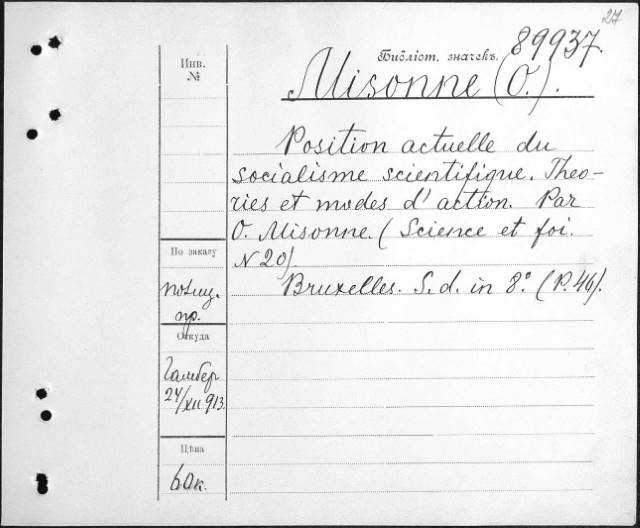 27
Библіот. значекъ. 89937.
Инв.
№
Misonne (O.).
Position actuelle du
socialisme scientifique. Theo-
ries et modes d'action. Par
O. Misonne. (Science et foi.
N 20).
Bruxelles. S.d. in 8.° (P. 46).
По заказу
полиц.
пр.
Откуда
Гамбер
24/XII 913.
Цѣна
60к.